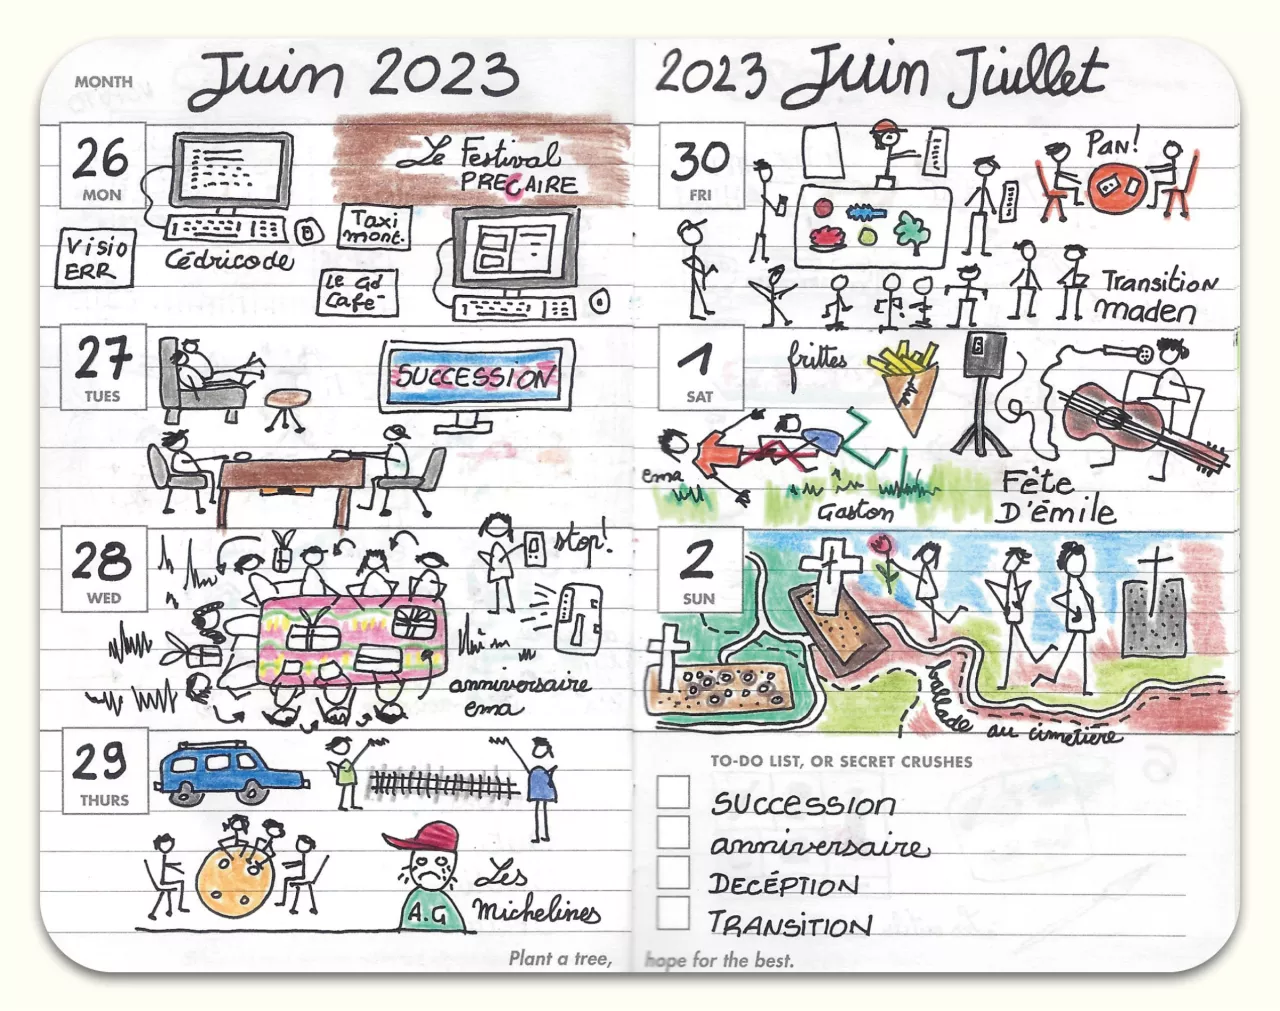 MONTH
Juin 2023
26
MON
Visio
ERR
Cédricode
Le Festival
PRECAIRE
Taxi
mont.
Le Gd
Café
27
TUES
SUCCESSION
28
WED
stop!
anniversaire
ema
29
THURS
A.G
Les
Michelines
Plant a tree,
2023 Juin Jiullet
30
FRI
Pan!
Transition
maden
1
SAT
frittes
ema
Gaston
Fête
D'émile
2
SUN
ballade au cimetière
TO-DO LIST, OR SECRET CRUSHES
SUCCESSION
anniversaire
DECÉPTION
TRANSITION
hope for the best.